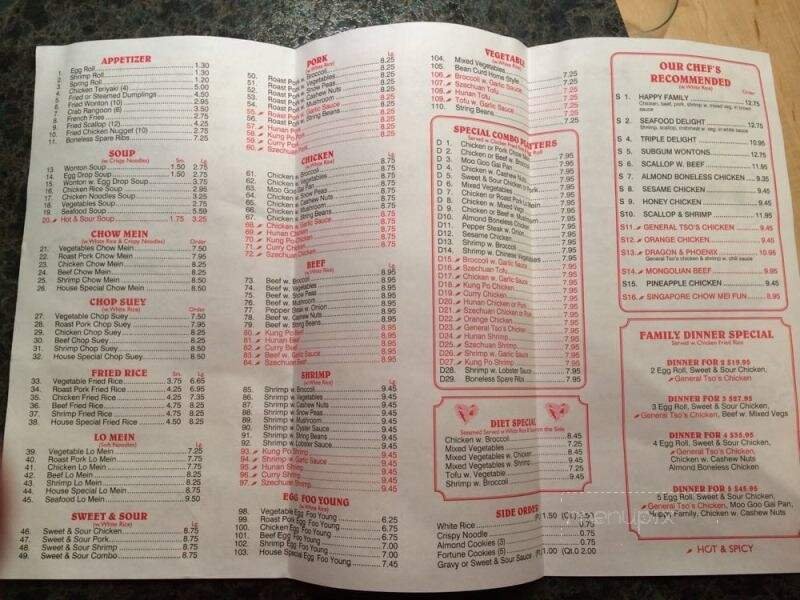 APPETIZER
1. Egg Roll 1.30
2. Shrimp Roll 1.30
3. Spring Roll 1.20
4. Chicken Teriyaki (4) 5.00
5. Fried or Steamed Dumplings 4.50
6. Fried Wonton (10) 2.95
7. Crab Rangoon (6) 3.50
8. French Fries 2.75
9. Fried Scallop (12) 4.25
10. Fried Chicken Nugget (10) 2.75
11. Boneless Spare Ribs 7.25
SOUP
(w. Crispy Noodles) Sm. Lg.
13. Wonton Soup 1.50 2.75
14. Egg Drop Soup 1.50 2.75
15. Wonton w. Egg Drop Soup 3.75
16. Chicken Rice Soup 2.95
17. Chicken Noodles Soup 3.25
18. Vegetables Soup 2.75
19. Seafood Soup 5.59
20. Hot & Sour Soup 1.75 3.25
CHOW MEIN
(w. White Rice & Crispy Noodles) Order
21. Vegetables Chow Mein 7.50
22. Roast Pork Chow Mein 7.95
23. Chicken Chow Mein 8.25
24. Beef Chow Mein 8.25
25. Shrimp Chow Mein 8.50
26. House Special Chow Mein 8.50
CHOP SUEY
(w. White Rice) Order
27. Vegetable Chop Suey 7.50
28. Roast Pork Chop Suey 7.95
29. Chicken Chop Suey 8.25
30. Beef Chop Suey 8.25
31. Shrimp Chop Suey 8.50
32. House Special Chop Suey 8.50
FRIED RICE
Sm. Lg.
33. Vegetable Fried Rice 3.75 6.65
34. Roast Pork Fried Rice 4.25 6.95
35. Chicken Fried Rice 4.25 7.35
36. Beef Fried Rice 4.75 8.25
37. Shrimp Fried Rice 4.75 8.25
38. House Special Fried Rice 4.50 8.25
LO MEIN
(Soft Noodles) Lg.
39. Vegetable Lo Mein 7.25
40. Roast Pork Lo Mein 7.75
41. Chicken Lo Mein 7.75
42. Beef Lo Mein 8.25
43. Shrimp Lo Mein 8.25
44. House Special Lo Mein 8.75
45. Seafood Lo Mein 9.50
SWEET & SOUR
(w. White Rice) Lg.
46. Sweet & Sour Chicken 8.75
47. Sweet & Sour Pork 8.75
48. Sweet & Sour Shrimp 8.75
49. Sweet & Sour Combo 8.75
PORK
(w. White Rice) Lg.
50. Roast Pork w. Broccoli 8.25
51. Roast Pork w. Vegetables 8.25
52. Roast Pork w. Snow Peas 8.25
53. Roast Pork w. Cashew Nuts 8.25
54. Roast Pork w. Mushroom 8.25
Roast Pork w. Garlic Sauce 8.25
56. Roast Pork w. String Beans 8.25
57. Hunan Pork 8.25
58. Kung Po Pork 8.25
59. Curry Pork 8.25
60. Szechuan Pork 8.25
CHICKEN
(w. White Rice) Lg.
61. Chicken w. Broccoli 8.75
62. Chicken w. Vegetables 8.75
63. Moo Goo Gai Pan 8.75
64. Chicken w. Snow Peas 8.75
65. Chicken w. Cashew Nuts 8.75
66. Chicken w. Mushroom 8.75
67. Chicken w. String Beans 8.75
68. Chicken w. Garlic Sauce 8.75
69. Hunan Chicken 8.75
70. Kung Po Chicken 8.75
71. Curry Chicken 8.75
72. Szechuan Chicken 8.75
BEEF
(w. White Rice) Lg.
73. Beef w. Broccoli 8.95
74. Beef w. Vegetables 8.95
75. Beef w. Snow Peas 8.95
76. Beef w. Mushroom 8.95
77. Pepper Steak w. Onion 8.95
78. Beef w. Cashew Nuts 8.95
79. Beef w. String Beans 8.95
80. Kung Po Beef 8.95
81. Hunan Beef 8.95
82. Curry Beef 8.95
83. Beef w. Garlic Sauce 8.95
84. Szechuan Beef 8.95
SHRIMP
(w. White Rice) Lg.
85. Shrimp w. Broccoli 9.45
86. Shrimp w. Vegetables 9.45
87. Shrimp w. Cashew Nuts 9.45
88. Shrimp w. Snow Peas 9.45
89. Shrimp w. Mushroom 9.45
90. Shrimp w. Oyster Sauce 9.45
91. Shrimp w. String Beans 9.45
92. Shrimp w. Lobster Sauce 9.45
93. Kung Po Shrimp 9.45
94. Shrimp w. Garlic Sauce 9.45
95. Hunan Shrimp 9.45
96. Curry Shrimp 9.45
97. Szechuan Shrimp 9.45
EGG FOO YOUNG
(w. White Rice)
98. Vegetable Egg Foo Young 6.25
99. Roast Pork Egg Foo Young 6.75
100. Chicken Egg Foo Young 6.75
101. Beef Egg Foo Young 6.75
102. Shrimp Egg Foo Young 7.00
103. House Special Egg Foo Young 7.45
VEGETABLE
(w. White Rice)
104. Mixed Vegetables 7.25
105. Bean Curd Home Style 7.25
106. Broccoli w. Garlic Sauce 7.25
107. Szechuan Tofu 7.25
108. Hunan Tofu 7.25
109. Tofu w. Garlic Sauce 7.25
110. String Beans 7.25
SPECIAL COMBO PLATTERS
Served w. Chicken Fried Rice Roll
D 1. Chicken or Pork Chow Mein 7.95
D 2. Chicken or Beef w. Broccoli 7.95
D 3. Moo Goo Gai Pan 7.95
D 4. Chicken w. Cashew Nuts 7.95
D 5. Sweet & Sour Chicken or Pork 7.95
D 6. Mixed Vegetables 7.95
D 7. Chicken or Roast Pork Lo Mein 7.95
D 8. Chicken w. Mixed Vegetables 7.95
D 9. Chicken or Beef w. Mushroom 7.95
D10. Almond Boneless Chicken 7.95
D11. Pepper Steak w. Onion 7.95
D12. Sesame Chicken 7.95
D13. Shrimp w. Broccoli 7.95
D14. Shrimp w. Chinese Vegetables 7.95
D15. Broccoli w. Garlic Sauce 7.95
D16. Szechuan Tofu 7.95
D17. Chicken w. Garlic Sauce 7.95
D18. Kung Po Chicken 7.95
D19. Curry Chicken 7.95
D20. Hunan Chicken or Pork 7.95
D21. Szechuan Chicken or Pork 7.95
D22. Orange Chicken 7.95
D23. General Tso's Chicken 7.95
D24. Hunan Shrimp 7.95
D25. Szechuan Shrimp 7.95
D26. Shrimp w. Garlic Sauce 7.95
D27. Kung Po Shrimp 7.95
D28. Shrimp w. Lobster Sauce 7.95
D29. Boneless Spare Ribs 7.95
DIET SPECIAL
Steamed Served w. White Rice & Sauce on the Side
Chicken w. Broccoli 8.45
Mixed Vegetables 7.25
Mixed Vegetables w. Chicken 8.45
Mixed Vegetables w. Shrimp 9.45
Tofu w. Vegetable 7.25
Shrimp w. Broccoli 9.45
SIDE ORDER
White Rice (Pt.) 1.50 (Qt.) 2.50
Crispy Noodle 0.75
Almond Cookies (3) 0.75
Fortune Cookies (5) 0.75
Gravy or Sweet & Sour Sauce (Pt.) 1.00 (Qt.) 2.00
OUR CHEF'S
RECOMMENDED
(w. White Rice)
S 1. HAPPY FAMILY 12.75
Chicken, beef, pork, shrimp w. mixed veg. in brown sauce
S 2. SEAFOOD DELIGHT 12.75
Shrimp, scallop, crabmeat w. veg. in white sauce
S 4. TRIPLE DELIGHT 10.95
S 5. SUBGUM WONTONS 12.75
S 6. SCALLOP W. BEEF 11.95
S 7. ALMOND BONELESS CHICKEN 9.35
S 8. SESAME CHICKEN 9.45
S 9. HONEY CHICKEN 9.45
S10. SCALLOP & SHRIMP 11.95
S11. GENERAL TSO'S CHICKEN 9.45
S12. ORANGE CHICKEN 9.45
S13. DRAGON & PHOENIX 10.95
General Tso's chicken & shrimp w. chili sauce
S14. MONGOLIAN BEEF 9.45
S15. PINEAPPLE CHICKEN 9.45
S16. SINGAPORE CHOW MEI FUN 8.95
FAMILY DINNER SPECIAL
Served w. Chicken Fried Rice
DINNER FOR 2 $19.95
2 Egg Roll, Sweet & Sour Chicken,
General Tso's Chicken
DINNER FOR 3 $27.95
3 Egg Roll, Sweet & Sour Chicken,
General Tso's Chicken, Beef w. Mixed Vegs
DINNER FOR 4 $35.95
4 Egg Roll, Sweet & Sour Chicken,
General Tso's Chicken,
Chicken w. Cashew Nuts
Almond Boneless Chicken
DINNER FOR 5 $45.95
5 Egg Roll, Sweet & Sour Chicken,
General Tso's Chicken, Moo Goo Gai Pan,
Happy Family, Chicken w. Cashew Nuts
HOT & SPICY
menupix